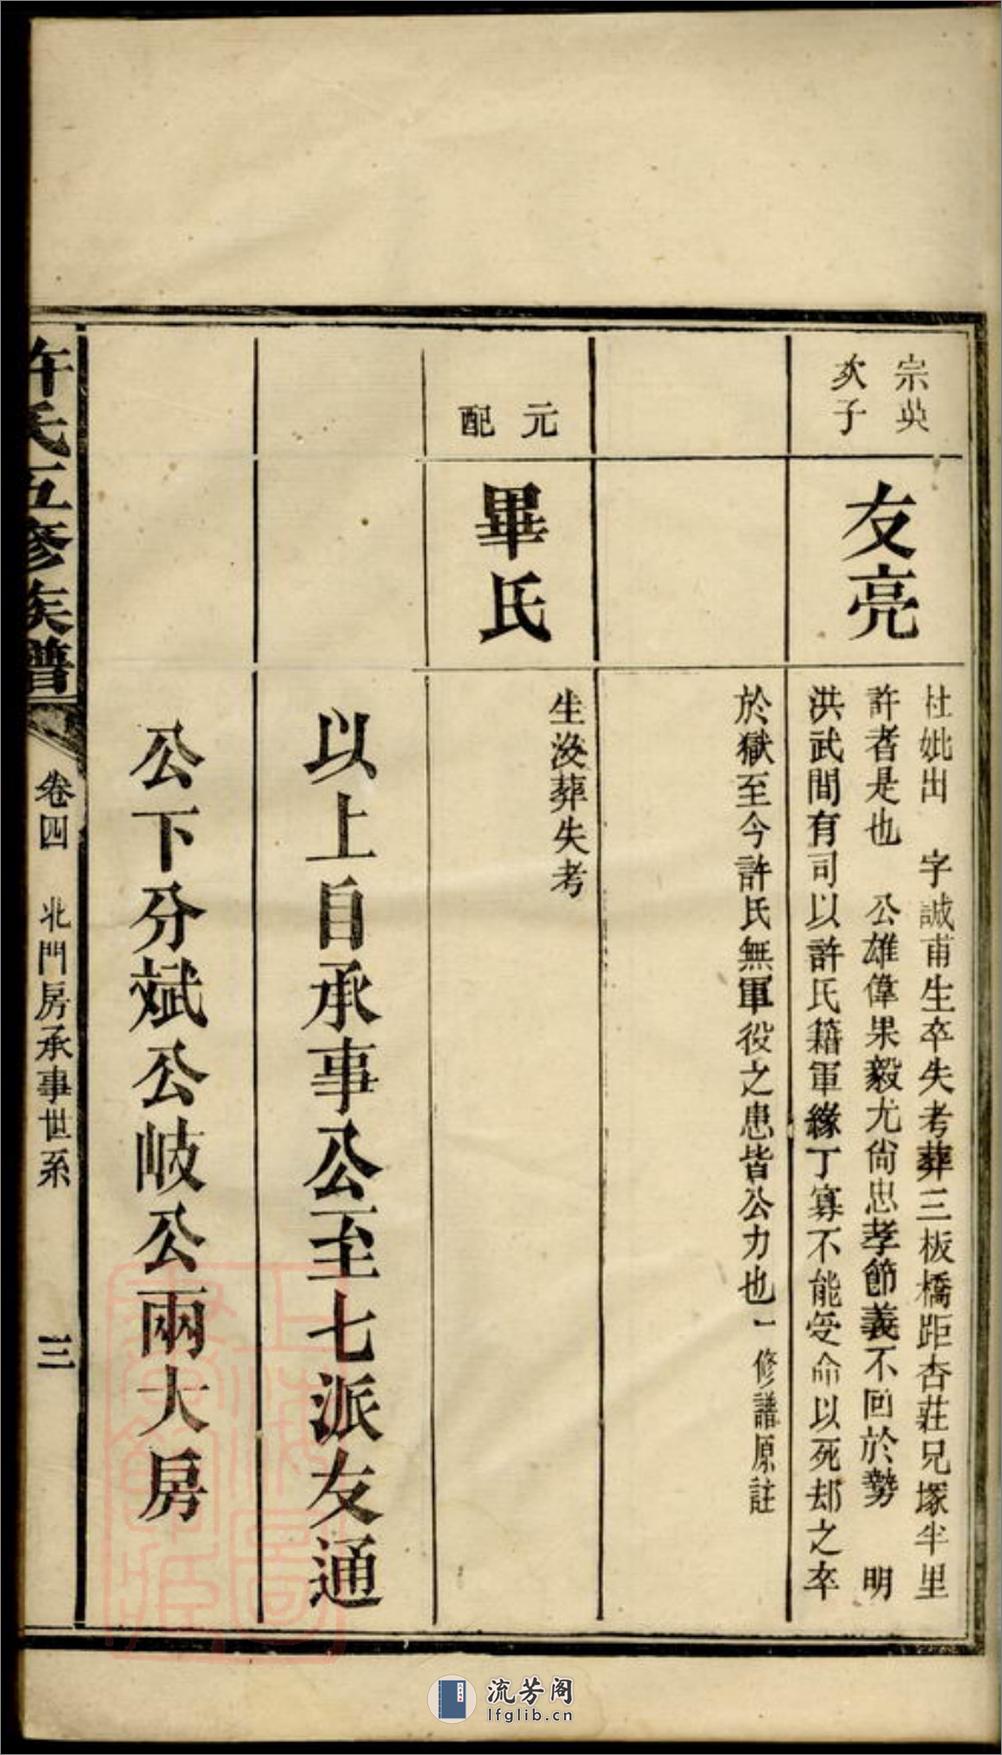 宗英
次子
友亮
杜妣出　字誠甫生卒失考葬三板橋距杏莊兄塚半里
許者是也　公雄偉果毅尤尙忠孝節義不回於勢　明
洪武間有司以許氏籍軍緣丁寡不能受命以死却之卒
於獄至今許氏無軍役之患皆公力也一修譜原註
元配
畢氏
生沒葬失考
以上自承事公至七派友通
公下分斌公岐公兩大房
許氏五修族譜
卷四　北門房承事世系
三
流芳阁
lfglib.cn